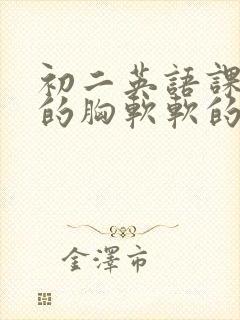 初二英語課
的胸軟軟的
金澤市